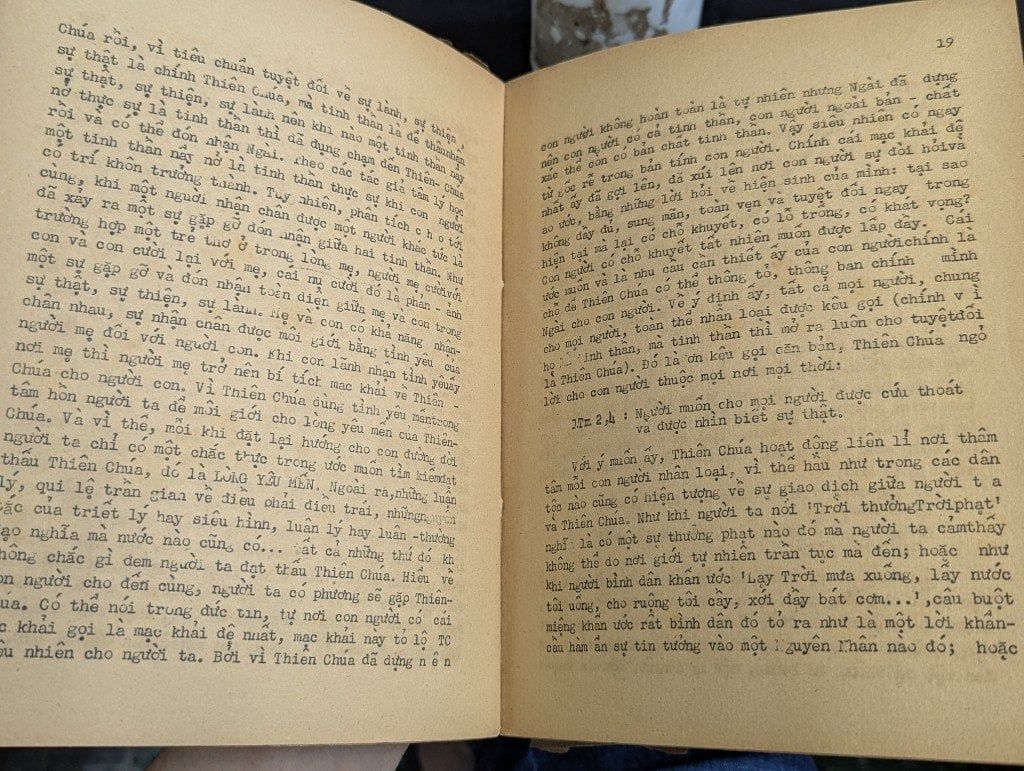 Chúa rồi, vì tiêu chuẩn tuyệt đối về sự lành, sự thiện,
sự thật là chính Thiên Chúa, mà tinh thần là để thấunhận
sự thật, sự thiện, sự lành nên khi nào một tinh thần này
nở thực sự là tinh thần thì đã đụng chạm đến Thiên- Chúa
rồi và có thể đón nhận Ngài. Theo các tác giả tâm lý học
một tinh thần nầy nở là tinh thần thực sự khi con người
có trí khôn trưởng thành. Tuy nhiên, phân tích c h o tới
cùng, khi một người nhận chân được một người khác tức là
đã xảy ra một sự gặp gỡ đón nhận giữa hai tinh thần. Như
trường hợp một trẻ thơ ở trong lòng mẹ, người mẹ cườivới
con và con cười lại với mẹ, cái nụ cười đó là phản - ánh
một sự gặp gỡ và đón nhận toàn diện giữa mẹ và con trong
sự thật, sự thiện, sự lành. Mẹ và con có khả năng nhận-
chân nhau, sự nhận chân được môi giới bằng tình yêu của
người mẹ đối với người con. Khi con lãnh nhận tình yêuấy
nơi mẹ thì người mẹ trở nên bí tích mạc khải về Thiên -
Chúa cho người con. Vì Thiên Chúa dùng tình yêu mếntrong
tâm hồn người ta để môi giới cho lòng yêu mến của Thiên-
Chúa. Và vì thế, mỗi khi đặt lại hướng cho con đường đời
người ta chỉ có một chắc thực trong ước muốn tìm kiếmđạt
thấu Thiên Chúa, đó là LÒNG YÊU MẾN. Ngoài ra,những luân
lý, qui lệ trần gian về điều phải điều trai, nhữngnguyên
tắc của triết lý hay siêu hình, luân lý hay luân -thường
đạo nghĩa mà nước nào cũng có... tất cả những thứ đó kh
không chắc gì đem người ta đạt thấu Thiên Chúa. Hiểu về
con người cho đến cùng, người ta có phương sẽ gặp Thiên-
Chúa. Có thể nói trong đức tin, tự nơi con người có cái
mạc khải gọi là mạc khải đệ nhất, mạc khải này tỏ lộ TC
siêu nhiên cho người ta. Bởi vì Thiên Chúa đã dựng n ê n
19
con người không hoàn toàn là tự nhiên nhưng Ngài đã dựng
nên con người có cả tinh thần, con người ngoài bản - chất
xác thể còn có bản chất tinh thần. Vậy siêu nhiên có ngay
từ gốc rễ trong bản tính con người. Chính cái mạc khải đệ
nhất ấy đã gợi lên, đã xúi lên nơi con người sự đòi hỏivà
ao ước, bằng những lời hỏi về hiện sinh của mình: tại sao
không đầy đủ, sung mãn, toàn vẹn và tuyệt đối ngay trong
hiện tại mà lại có chỗ khuyết, có lỗ trống, có khát vọng?
Con người có chỗ khuyết tất nhiên muốn được lấp đầy. Cái
ước muốn và là nhu cầu cần thiết ấy của con ngườichính là
chỗ để Thiên Chúa có thể thông tỏ, thông ban chính mình
Ngài cho con người. Về ý định ấy, tất cả mọi người, chung
cho mọi người, toàn thể nhân loại được kêu gọi (chính v ì
họ là tinh thần, mà tinh thần thì mở ra luôn cho tuyệtđối
là Thiên Chúa). Đó là ơn kêu gọi căn bản, Thiên Chúa ngỏ
lời cho con người thuộc mọi nơi mọi thời:
1Tm 2,4 : Người muốn cho mọi người được cứu thoát
và được nhìn biết sự thật.
Với ý muốn ấy, Thiên Chúa hoạt động liên lỉ nơi thâm
tâm mỗi con người nhân loại, vì thế hầu như trong các dân
tộc nào cũng có hiện tượng về sự giao dịch giữa người t a
và Thiên Chúa. Như khi người ta nói 'Trời thưởngTrờiphạt'
nghĩa là có một sự thưởng phạt nào đó mà người ta cảmthấy
không thể do nơi giới tự nhiên trần tục mà đến; hoặc như
khi người bình dân khấn ước 'Lạy Trời mưa xuống, lấy nước
tôi uống, cho ruộng tôi cầy, xới đầy bát cơm...',câu buột
miệng khấn ước rất bình dân đó tỏ ra như là một lời khấn-
cầu hàm ẩn sự tin tưởng vào một Nguyên Nhân nào đó; hoặc